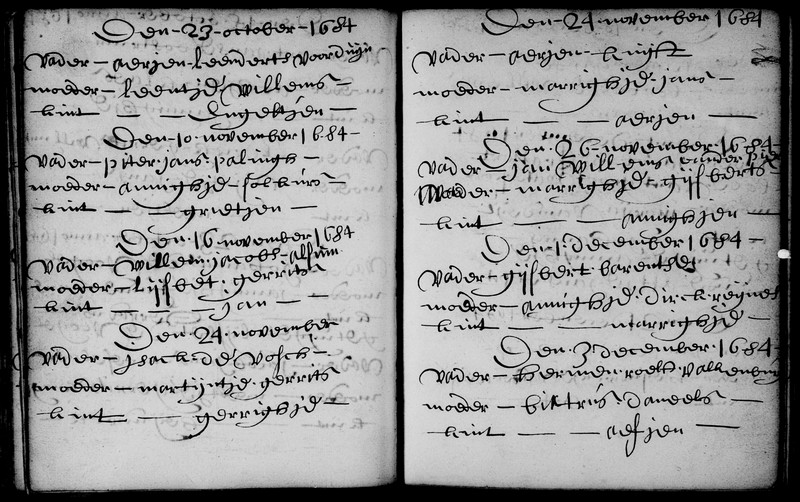 Den 23 october 1684
vader - aerien leenderts voorduijn
moeder - leentjd willems -
kint - - Engeltjen -
Den 10 november 1684 -
vader - piter jans palingh -
moeder - annighjd folkurs -
kint - - grietjen -
Den 16 november 1684
vader - willem jacobs
moeder - lijsbet gerrits
kint - - jan -
Den 24 november
vader - jsack de vosch -
moeder - martijntjd gerrits
kint - - gerrighjd -
Den 24 november 1684
vader - aerjen
moeder - marrighjd jans -
kint - - aerjen -
Den 26 november 1684
vader - jan willems vander
moeder - marrighjd gijsberts
kint - - annighjen -
Den 1 december 1684 -
vader - gijsbert barentse
moeder - annighjd dirck reijners
kint - - marrighjd -
Den 3 december 1684 -
vader - hermen roelt valkenburg
moeder - bittrus daneels -
kint - - aefjen -